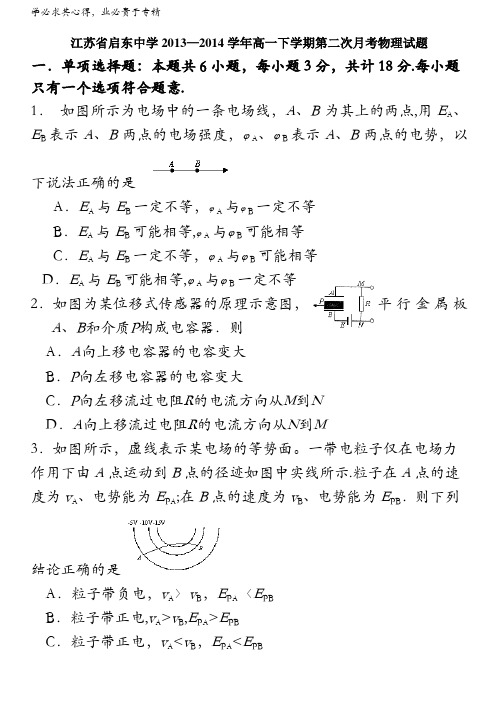 学必求其心得,业必贵于专精
江苏省启东中学 2013—2014 学年高一下学期第二次月考物理试题
一.单项选择题:本题共 6 小题,每小题 3 分,共计 18 分.每小题
只有一个选项符合题意.
1. 如图所示为电场中的一条电场线,A、B 为其上的两点,用 EA、
EB 表示 A、B 两点的电场强度,φA、φB 表示 A、B 两点的电势,以
A B
下说法正确的是
A.EA 与 EB 一定不等,φA 与φB 一定不等
B.EA 与 EB 可能相等,φA 与φB 可能相等
C.EA 与 EB 一定不等,φA 与φB 可能相等
D.EA 与 EB 可能相等,φA 与φB 一定不等
2.如图为某位移式传感器的原理示意图,平行金属板
A P B M R N E
A、B和介质P构成电容器.则
A.A向上移电容器的电容变大
B.P向左移电容器的电容变大
C.P向左移流过电阻R的电流方向从M到N
D.A向上移流过电阻R的电流方向从N到M
3.如图所示,虚线表示某电场的等势面。一带电粒子仅在电场力
作用下由 A 点运动到 B 点的径迹如图中实线所示.粒子在 A 点的速
度为 vA、电势能为 EPA;在 B 点的速度为 vB、电势能为 EPB.则下列
-5V -10V -15V
A B
结论正确的是
A.粒子带负电,vA〉vB,EPA〈EPB
B.粒子带正电,vA>vB,EPA>EPB
C.粒子带正电,vA<vB,EPA<EPB